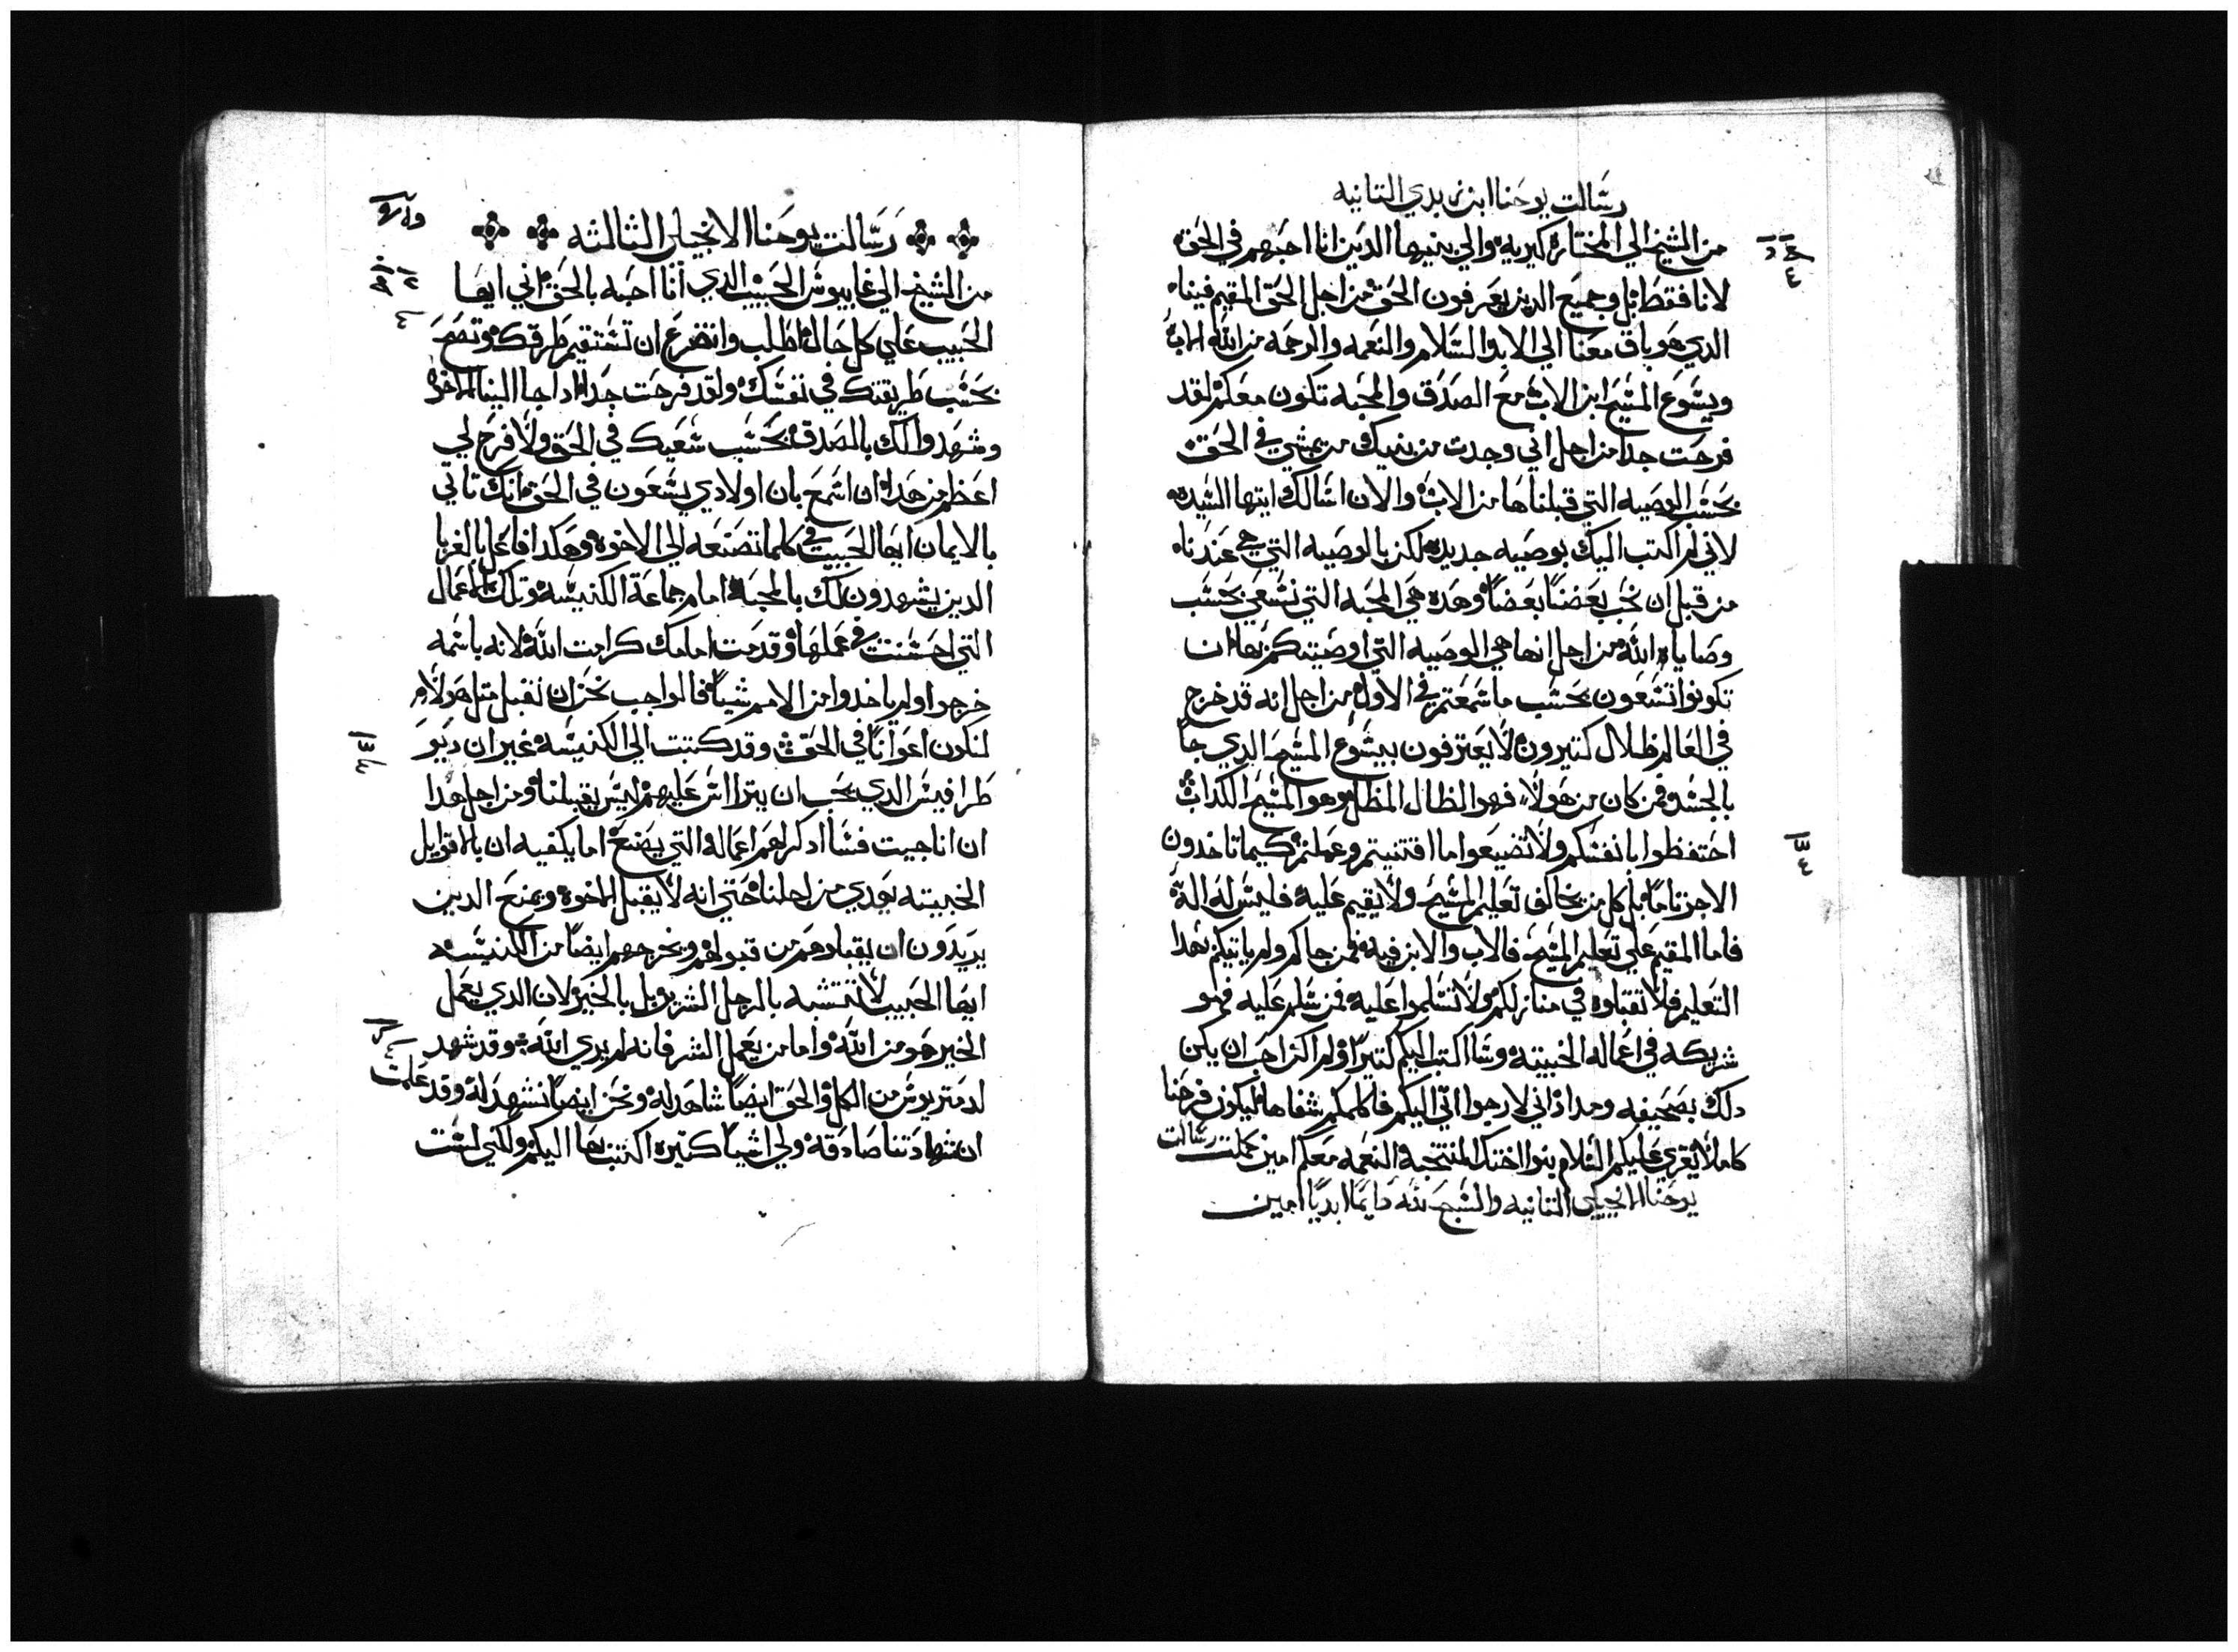 رسالت يوحنا ابن زبدي التانيه
من الشيخ الي المختاره كيريه والي بنيها الدين انا احبهم في الحق
لا انا فقط بل وجميع الدين يعرفون الحق من اجل الحق المقيم فينا
الدي هو باق معنا الي الابد السلام والنعمه والرحمه من الله الاب
ويسوع المسيح ابن الاب مع الصدق والمحبه تكون معكم لقد
فرحت جدا من اجل اني وجدت من بنيك من يمشي في الحق
بحسب الوصيه التي قبلناها من الاب والان اسالك ايتها السيده
لاني لم اكتب اليك بوصيه جديده لكن بالوصيه التي هي عندنا
من قبل ان نحب بعضنا بعضاً وهده هي المحبه التي نسعي بحسب
وصاياه الله من اجل انها هي الوصيه التي اوصيتكم بها ان
تكونوا تسعون بحسب ما سمعتم في الاول من اجل انه قد خرج
في العالم ظلال كتيرون لا يعترفون بيسوع المسيح الدي جا
بالجسد فمن كان من هولاء فهو الظال المظل وهو المسيح الكداب
احتفظوا بانفسكم ولا تضيعوا ما اقتنيتم وعملتم كيما تاخدون
الاجر تاماً بل كل من يخالف تعليم المسيح ولا يقيم عليه فليس له اله
فاما المقيم علي تعليم المسيح فالاب والابن فيه فمن جاكم ولم ياتيكم بهدا
التعليم فلا تقبلوه في منازلكم ولا تسلموا عليه فمن سلم عليه فهو
شريكه في اعماله الخبيته وسا اكتب اليكم كتيراً ولم اكن احب ان يكن
دلك بصحيفه ومداد اني لارجوا اتي اليكم فاكلمكم شفاها ليكون فرحنا
كاملاً يقري عليكم السلام بنوا اختك المنتجبه النعمه معكم امين كملت رسالت
يوحنا الانجيلي التانيه والسبح لله دايماً ابدياً امين
رسالت يوحنا الانجيلي الثالثه
من الشيخ الي غاييوس الحبيب الدي انا احبه بالحق اني ايها
الحبيب علي كل حال اطلب واتضرع ان تستقيم طرقك وتصح
بحسب طريقتك في نفسك ولقد فرحت جداً اد جا الينا الاخوه
وشهدوا لك بالصدق بحسب سعيك في الحق ولا فرح لي
اعظم من هدا ان اسمع بان اولادي يسعون في الحق انك تاتي
بالايمان ايها الحبيب في كلما تصنعه الي الاخوه وهكدا فاعل بالغربا
الدين يشهدون لك بالمحبه امام جماعة الكنيسه وتلك الاعمال
التي احسنت في عملها وقدمت امامك كرامت الله لانه باسمه
خرجوا ولم ياخدوا من الامم شيأ فالواجب نحن ان نقبل متل هولاء
لنكون اعواناً في الحق وقد كتبت الي الكنيسه غير ان ديو
طرافيس الدي يحب ان يتراس عليهم ليس يقبلنا ومن اجل هدا
ان انا جيت فسا ادكر لهم اعماله التي يصنع اما يكفيه ان بالاقويل
الخبيته يودي من اجلنا حتي انه لا يقبل الاخوه ويمنع الدين
يريدون ان يقبلوهم من قبولهم ويخرجهم ايضاً من الكنيسه
ايها الحبيب لا تتشبه بالرجل الشرير بل بالخير لان الدي يعمل
الخير هو من الله واما من يعمل الشر فانه لم يري الله وقد شهد
لدمتريوس من الكل والحق ايضاً شاهد له ونحن ايضاً نشهد له وقد علمت
ان شهادتنا صادقه ولي اشيا كتيره اكتب بها اليكم ولكني لست